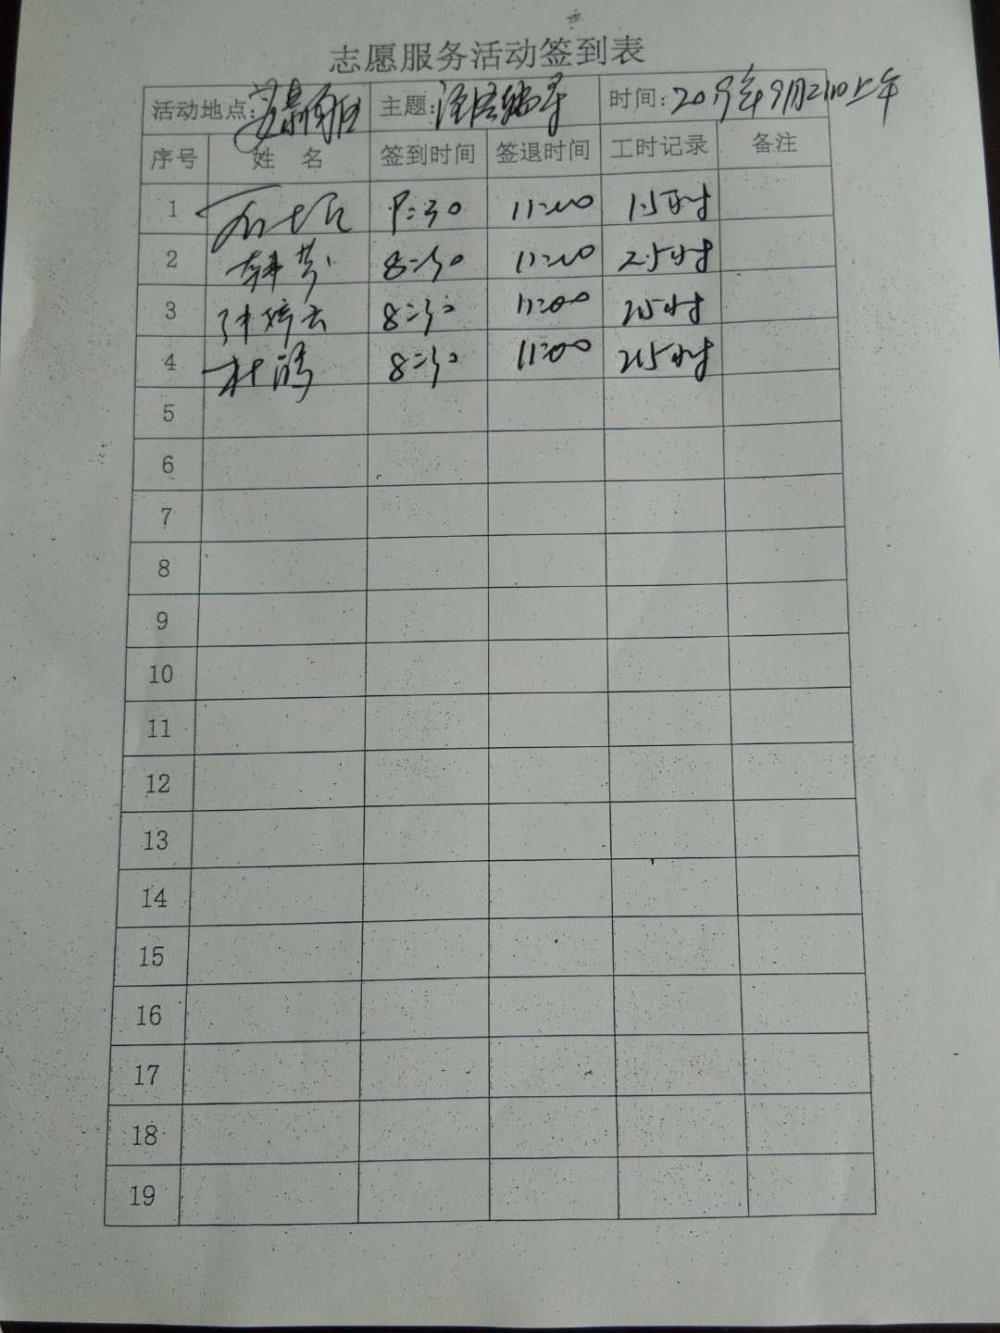 志愿服务活动签到表
活动地点: 主题: 时间: 2019年9月21日上午
序号 姓 名 签到时间 签退时间 工时记录 备注
1 9:30 11:00 1.5小时
2 韩芳 8:30 11:00 2.5小时
3 8:30 11:00 2.5小时
4 杜鹃 8:30 11:00 2.5小时
5
6
7
8
9
10
11
12
13
14
15
16
17
18
19